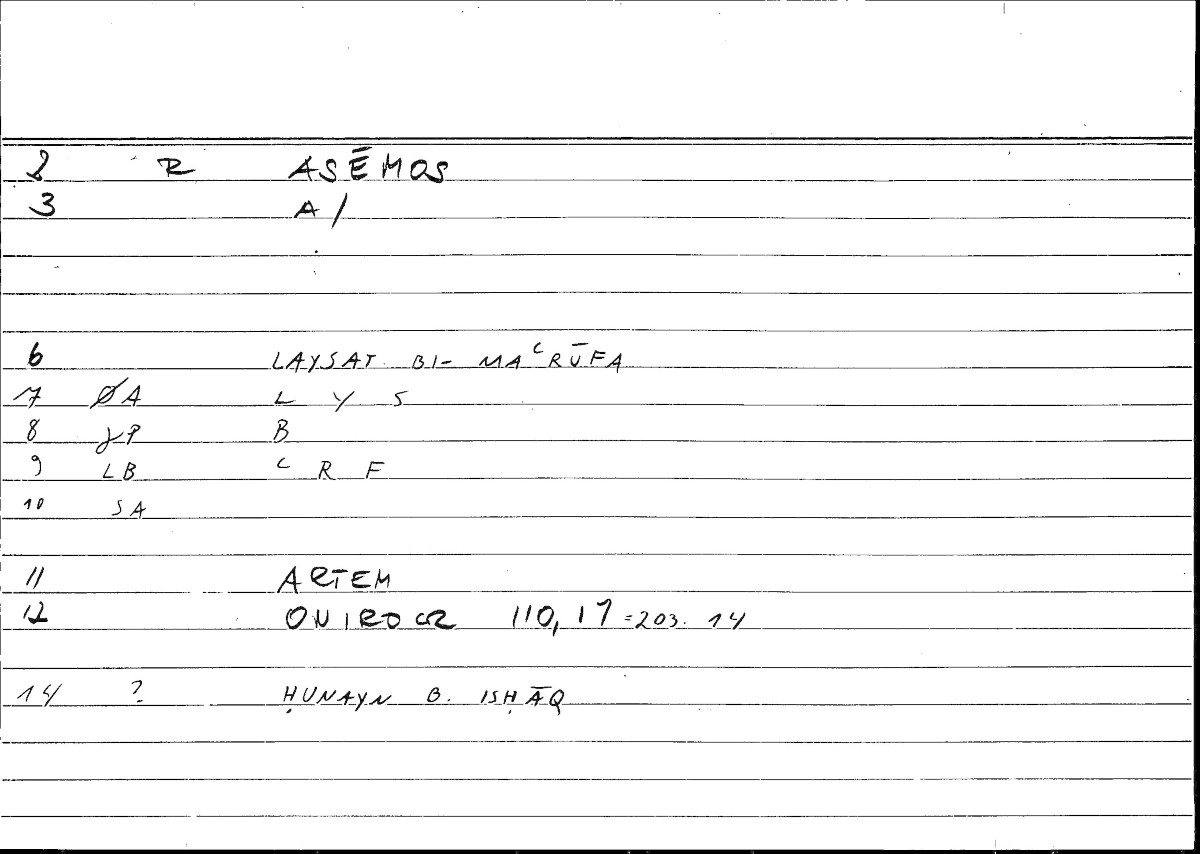 2 R ASĒMOS
3 A/
6 LAYSAT BI- MAᶜRŪFA
7 ØA L Y S
8 γP B
9 LB ᶜ R F
10 SA
11 ARTEM
12 ONIROCR 110, 17 =203. 14
14 ? ḤUNAYN B. ISḤĀQ